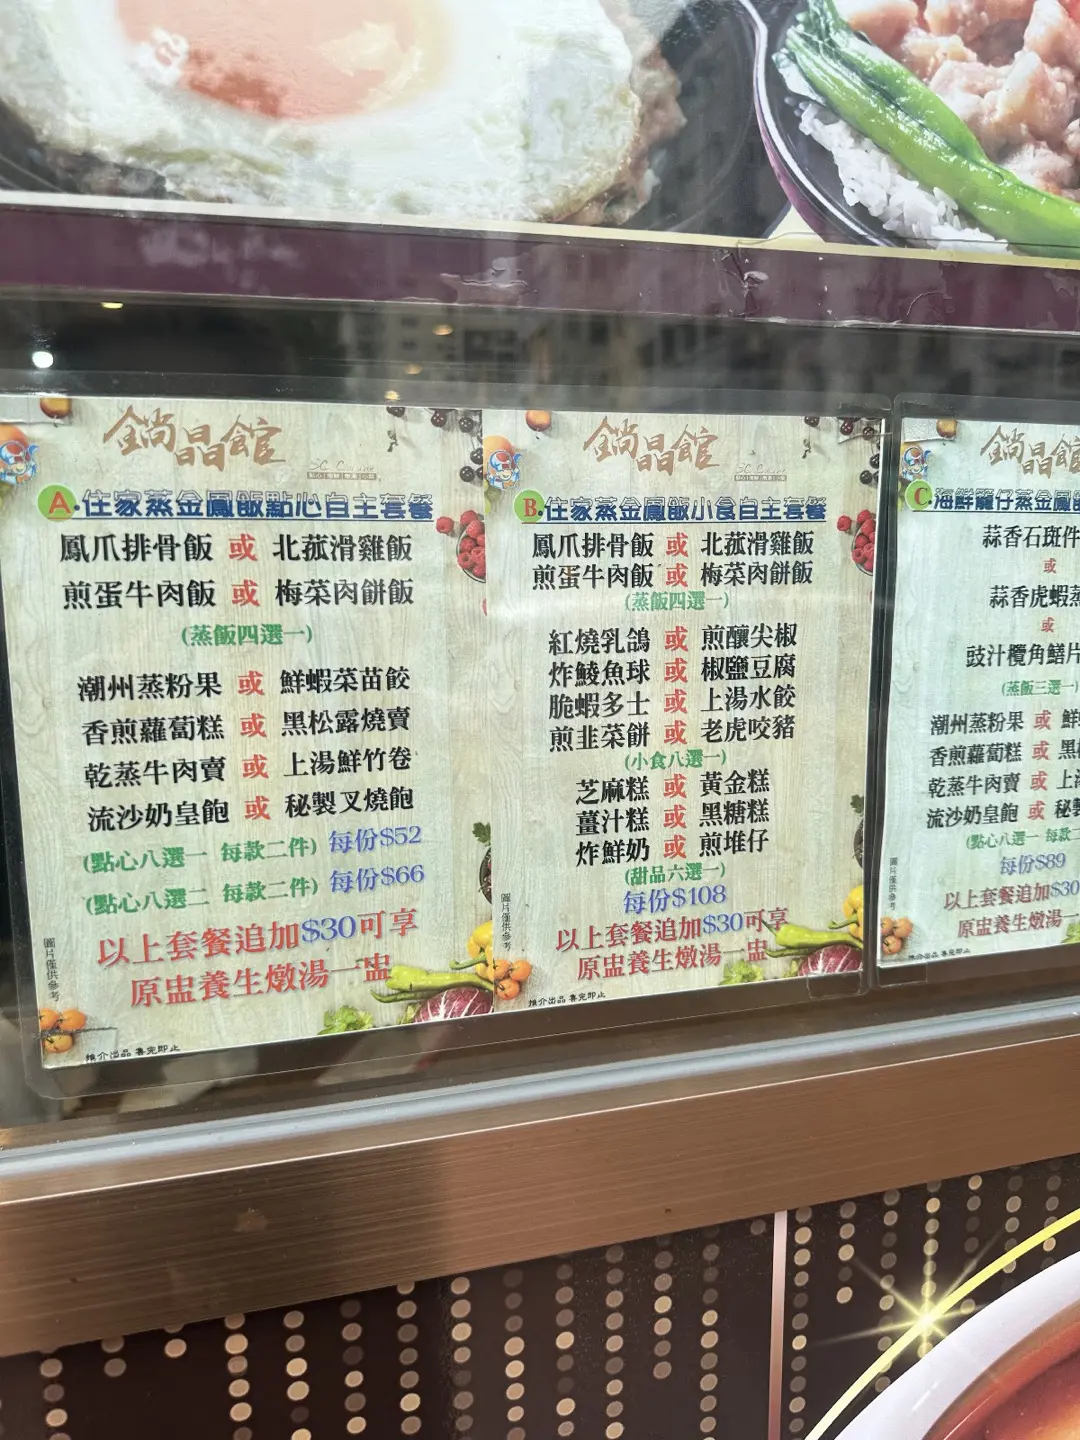 鍋晶館
SC Cuisine
A.住家蒸金鳳飯點心自主套餐
鳳爪排骨飯 或 北菰滑雞飯
煎蛋牛肉飯 或 梅菜肉餅飯
(蒸飯四選一)
潮州蒸粉果 或 鮮蝦菜苗餃
香煎蘿蔔糕 或 黑松露燒賣
乾蒸牛肉賣 或 上湯鮮竹卷
流沙奶皇飽 或 秘製叉燒飽
(點心八選一 每款二件) 每份$52
(點心八選二 每款二件) 每份$66
以上套餐追加$30可享
原盅養生燉湯一盅
圖片僅供參考
推介出品 售完即止
鍋晶館
B.住家蒸金鳳飯小食自主套餐
鳳爪排骨飯 或 北菰滑雞飯
煎蛋牛肉飯 或 梅菜肉餅飯
(蒸飯四選一)
紅燒乳鴿 或 煎釀尖椒
炸鯪魚球 或 椒鹽豆腐
脆蝦多士 或 上湯水餃
煎韭菜餅 或 老虎咬豬
(小食八選一)
芝麻糕 或 黃金糕
薑汁糕 或 黑糖糕
炸鮮奶 或 煎堆仔
(甜品六選一)
每份$108
以上套餐追加$30可享
原盅養生燉湯一盅
圖片僅供參考
推介出品 售完即止
鍋晶館
C.海鮮籠仔蒸金鳳
蒜香石斑件
或
蒜香虎蝦蒸
或
豉汁欖角鱔片
(蒸飯三選一)
潮州蒸粉果 或 鮮
香煎蘿蔔糕 或 黑
乾蒸牛肉賣 或 上
流沙奶皇飽 或 秘
(點心八選一 每款二
每份$89
以上套餐追加$30
原盅養生燉湯一
圖片僅供參考
推介出品 售完即止